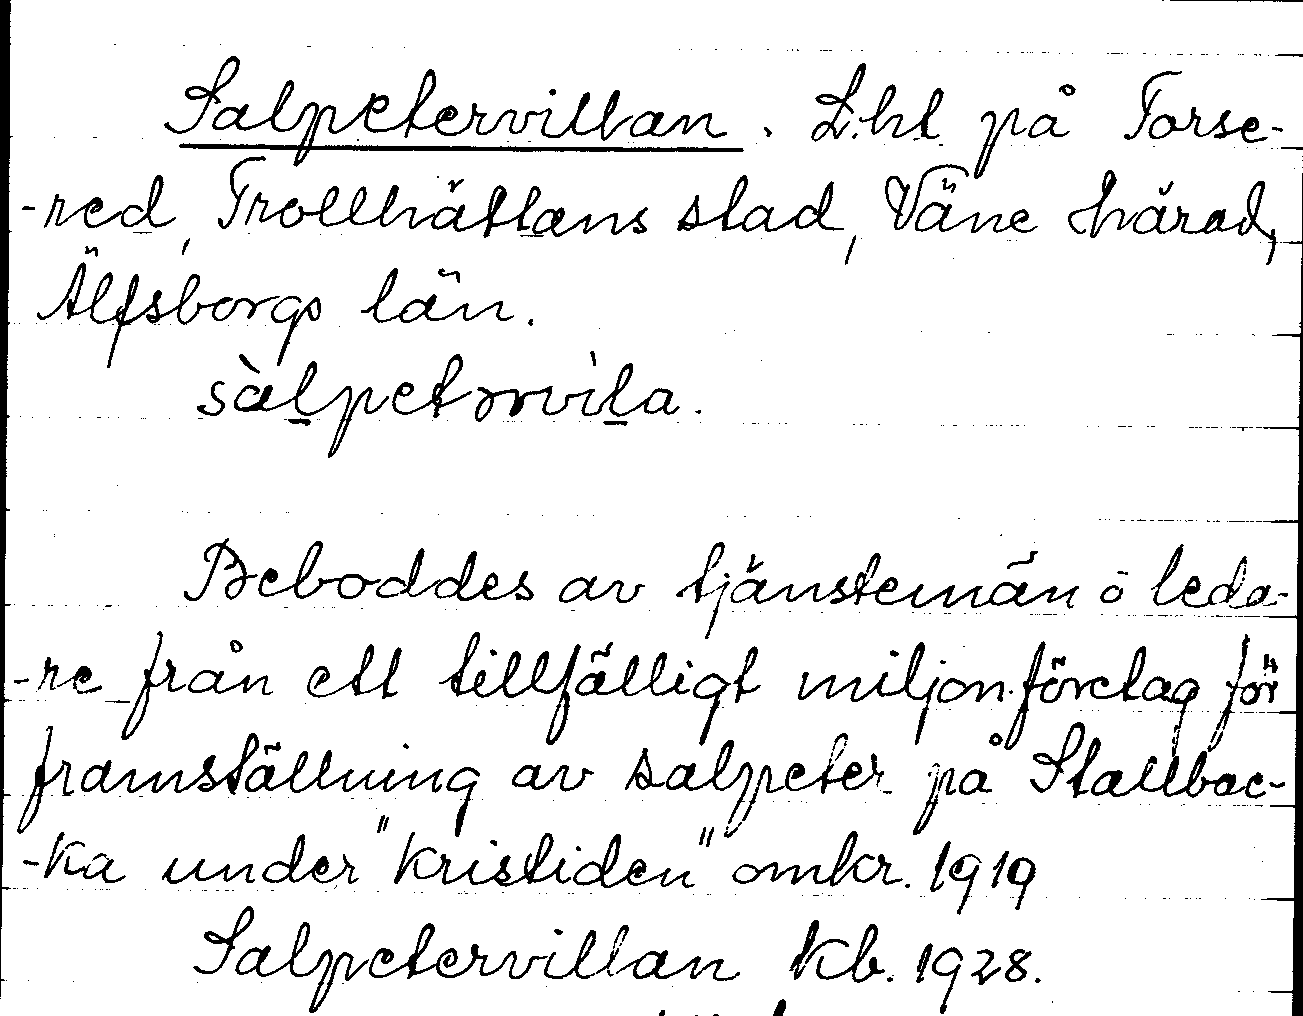 Salpetervillan. L:ht på Torse-
-red, Trollhättans stad, Väne härad,
Älfsborgs län.
sàlpetərvìla.
Beboddes av tjänstemän o leda-
-re från ett tillfälligt miljonföretag för
framställning av salpeter på Stallbac-
-ka under "kristiden" omkr. 1919
Salpetervillan Kb. 1928.